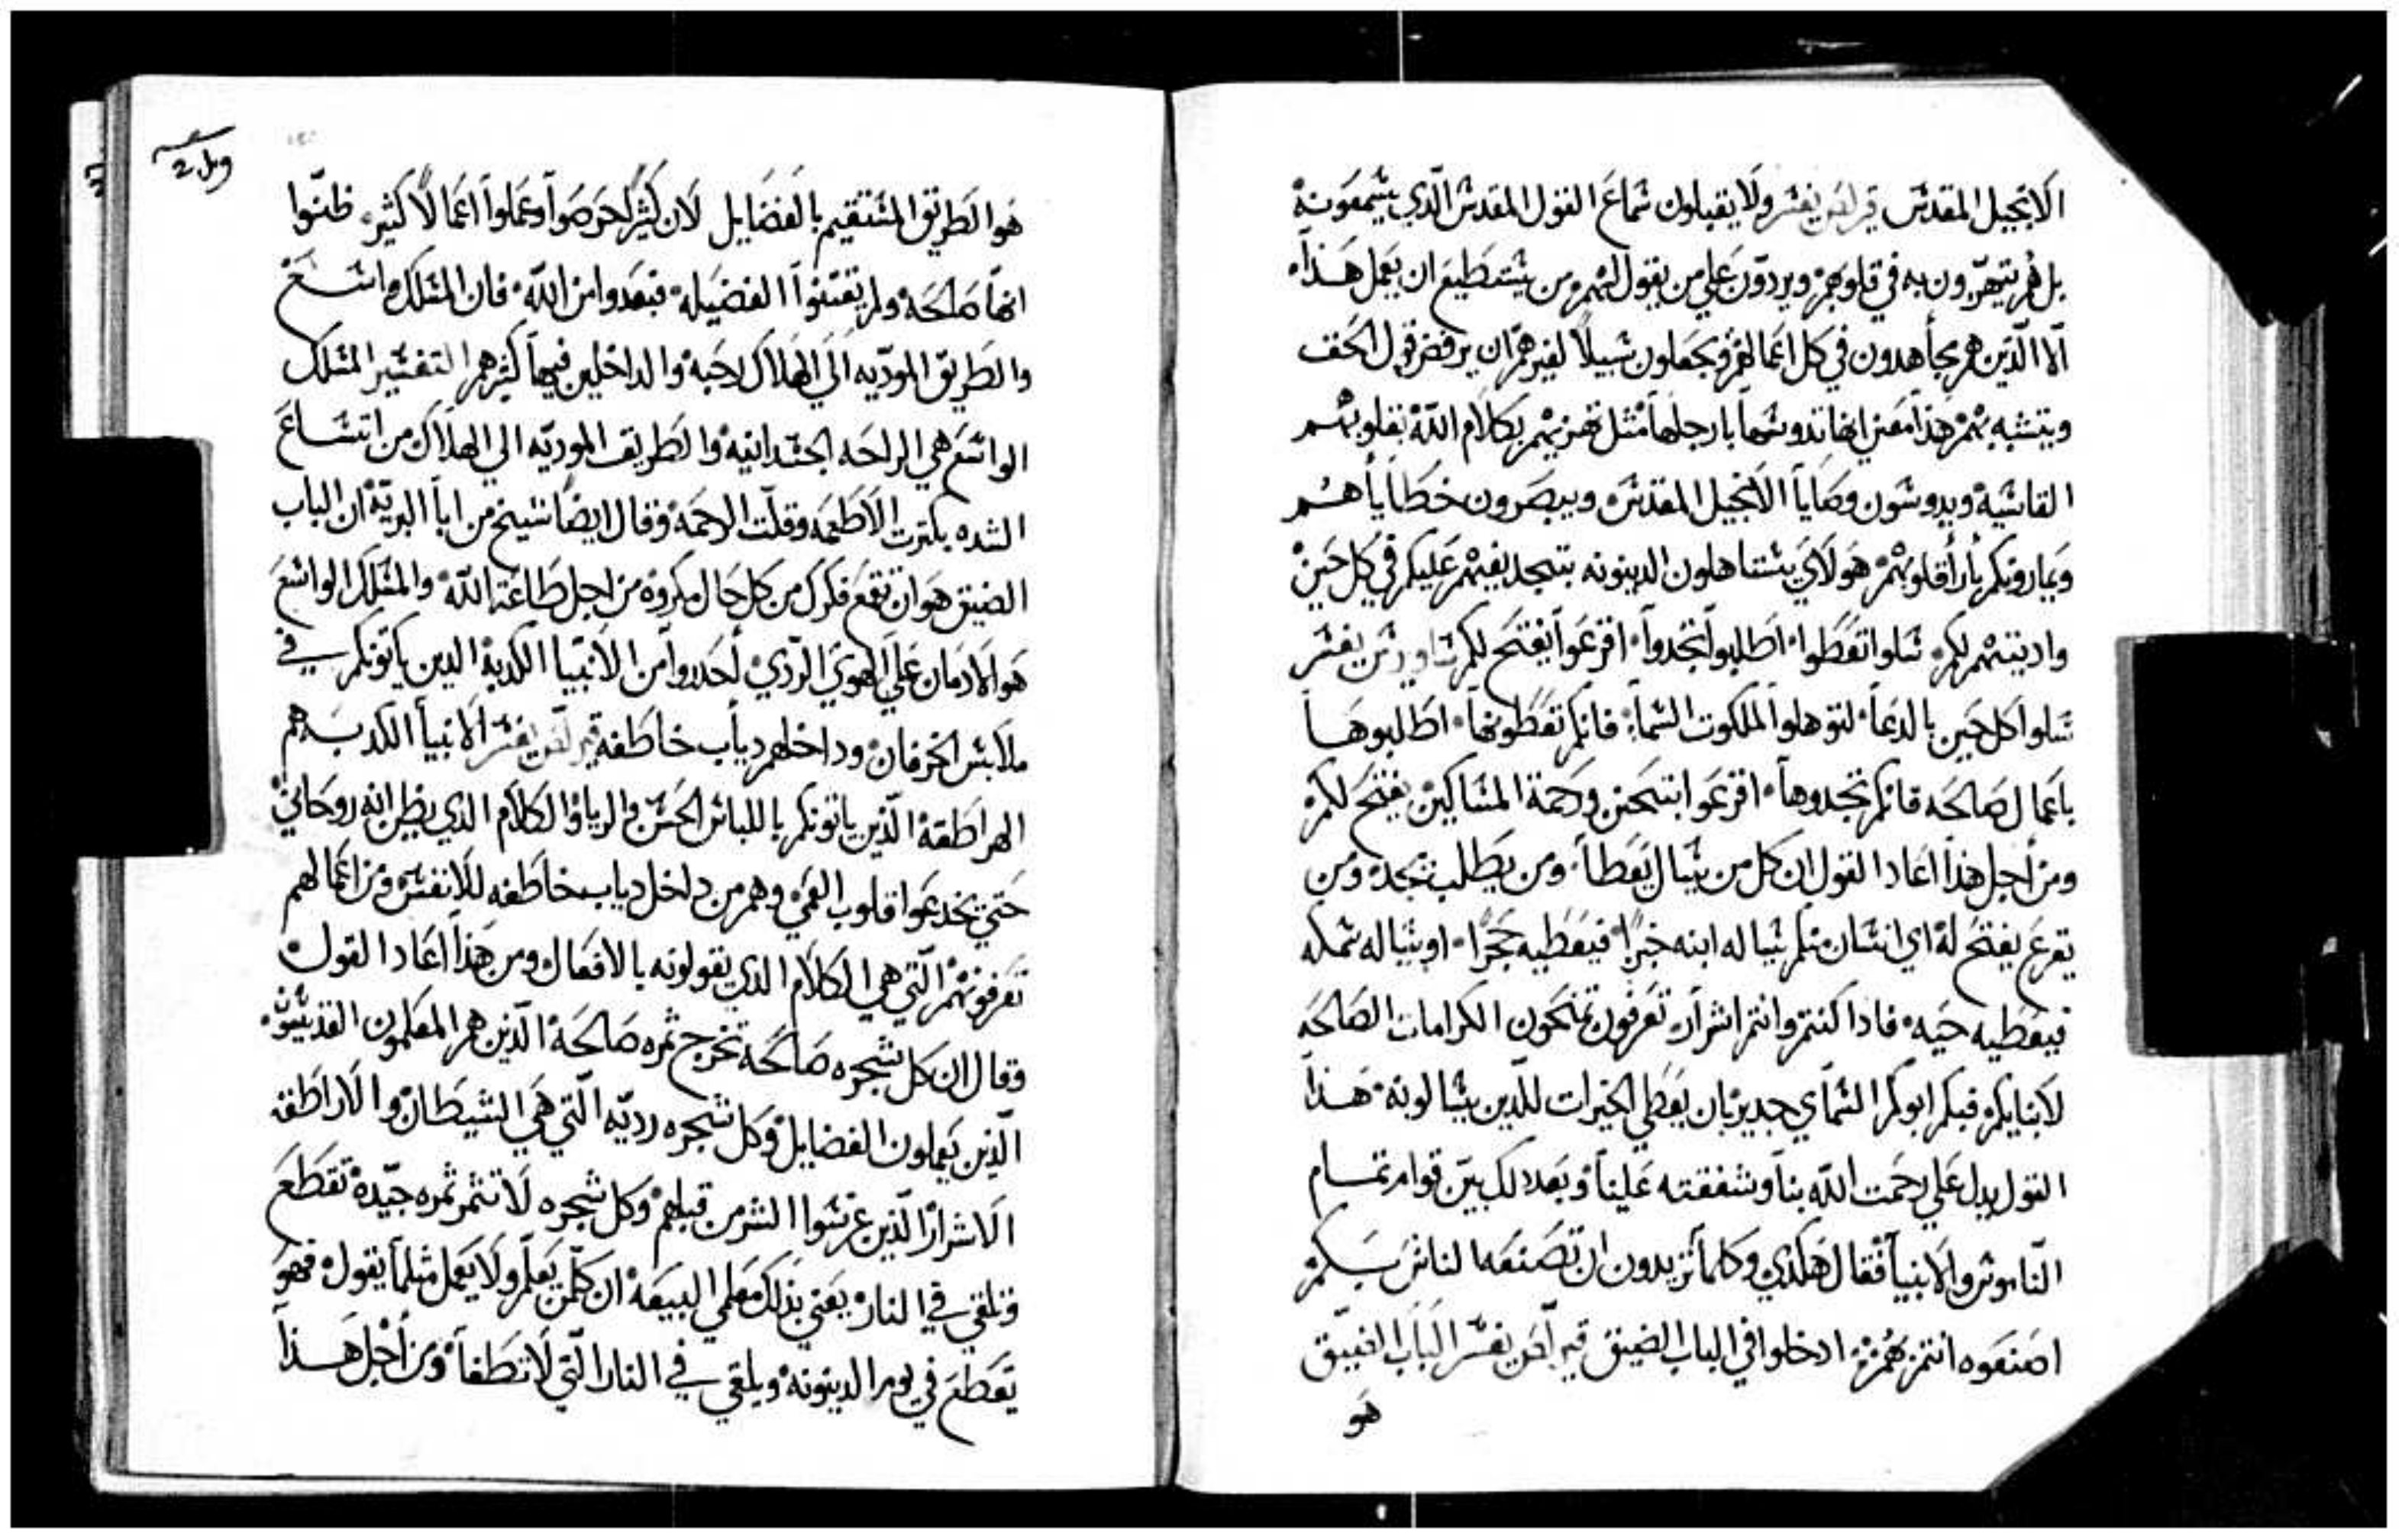 الانجيل المقدس قيرلص يفسر ولا يقبلون سماع القول المقدس الذي يسمعونه
بل هم يتهرون به في قلوبهم ويردون علي من يقول لهم من يستطيع ان يعمل هذا
الا الذين هم يجاهدون في كل اعمالهم ويجعلون سبيلا لغيرهم ان يرفض قول الحق
ويتشبه بهم هذا معني انها تدوسها بارجلها مثل تهزيهم بكلام الله بقلوبهم
القاسيه ويدوسون وصايا الانجيل المقدس ويبصرون خطاياهم
ويمارونكم بارا قلوبهم هولاي يستاهلون الدينونه بتجديفهم عليكم في كل حين
وادينتهم لكم سلوا تعطوا اطلبوا تجدوا اقرعوا يفتح لكم ساويرس يفسر
سلوا كل حين بالدعا لتوهلوا الملكوت السما فانكم تعطونها اطلبوها
باعمال صالحه فانكم تجدوها اقرعوا بتحنن ورحمة المساكين يفتح لكم
ومن اجل هذا اعاد القول ان كل من يسال يعطا ومن يطلب يجده ومن
يقرع يفتح له اي انسان منكم يساله ابنه خبزا فيعطيه حجرا او يساله سمكه
فيعطيه حيه فادا كنتم وانتم اشرار تعرفون تمنحون الكرامات الصالحه
لابنايكم فبكم ابوكم السماي جدير بان يعطي الخيرات للذين يسالونه هذا
القول يدل علي رحمت الله بنا وشفقته علينا وبعد دلك بين قوام تمام
الناموس والانبيا فقال هكدي وكلما تريدون ان تصنعه الناس بكم
اصنعوه انتم بهم ادخلوا في الباب الضيق قيرلص يفسر الباب الضيق
هو
هو الطريق المستقيم بالفضايل لان كثير حرصوا وعملوا اعمالا كثيره ظنوا
انها صالحه ولم يقتنوا الفضيله فبعدوا من الله فان المسلك واسع
والطريق الموديه الي الهلاك رحبه والداخلين فيها كثير هم التفسير المسلك
الواسع هي الراحه الجسدانيه والطريق الموديه الي الهلاك من اتساع
الشده بكثرت الاطعمه وقلت الرحمه وقال ايضا شيخ من ابا البريه ان الباب
الضيق هو ان تقع فكرك من كل حال مكروه من اجل طاعة الله والمسلك الواسع
هو الادمان علي الهوي الردي احدروا من الانبيا الكدبة الدين ياتونكم في
ملابس الخرفان وداخلهم دياب خاطفه قيرلص يفسر الانبيا الكدبه هم
الهراطقة الذين ياتونكم باللباس الحسن والريا والكلام الذي يظن انه روحاني
حتي يخدعوا قلوب العمي وهم من داخل دياب خاطفه للانفس ومن اعمالهم
تعرفونهم التي هي الكلام الدي يقولونه بالافعال ومن هذا اعاد القول
وقال ان كل شجره صالحه تخرج ثمره صالحة الذين هم المعلمون القديسون
الذين يعملون الفضايل وكل شجره رديه التي هي الشيطان والاراطقه
الاشرار الذين غرسوا الشر من قبلهم وكل شجره لا تثمر ثمره جيده تقطع
وتلقي في النار يعني بذلك معلمي البيعة ان كل من يعلم ولا يعمل مثلما يقول فهو
يقطع في يوم الدينونه ويلقي في النار التي لا تطفا ومن اجل هذا